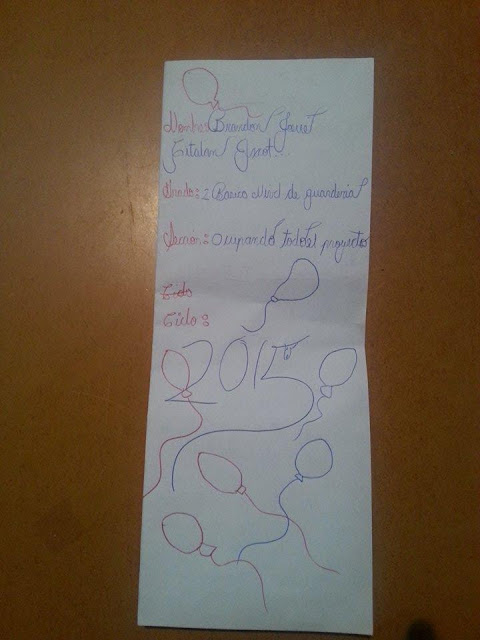 Nombre: Brandon Jauet
Catalan Gnot.
Grado: 2 Basico Nivel de guarderia
Sección: Ocupando todo el proyecto
Ciclo
Ciclo:
2015